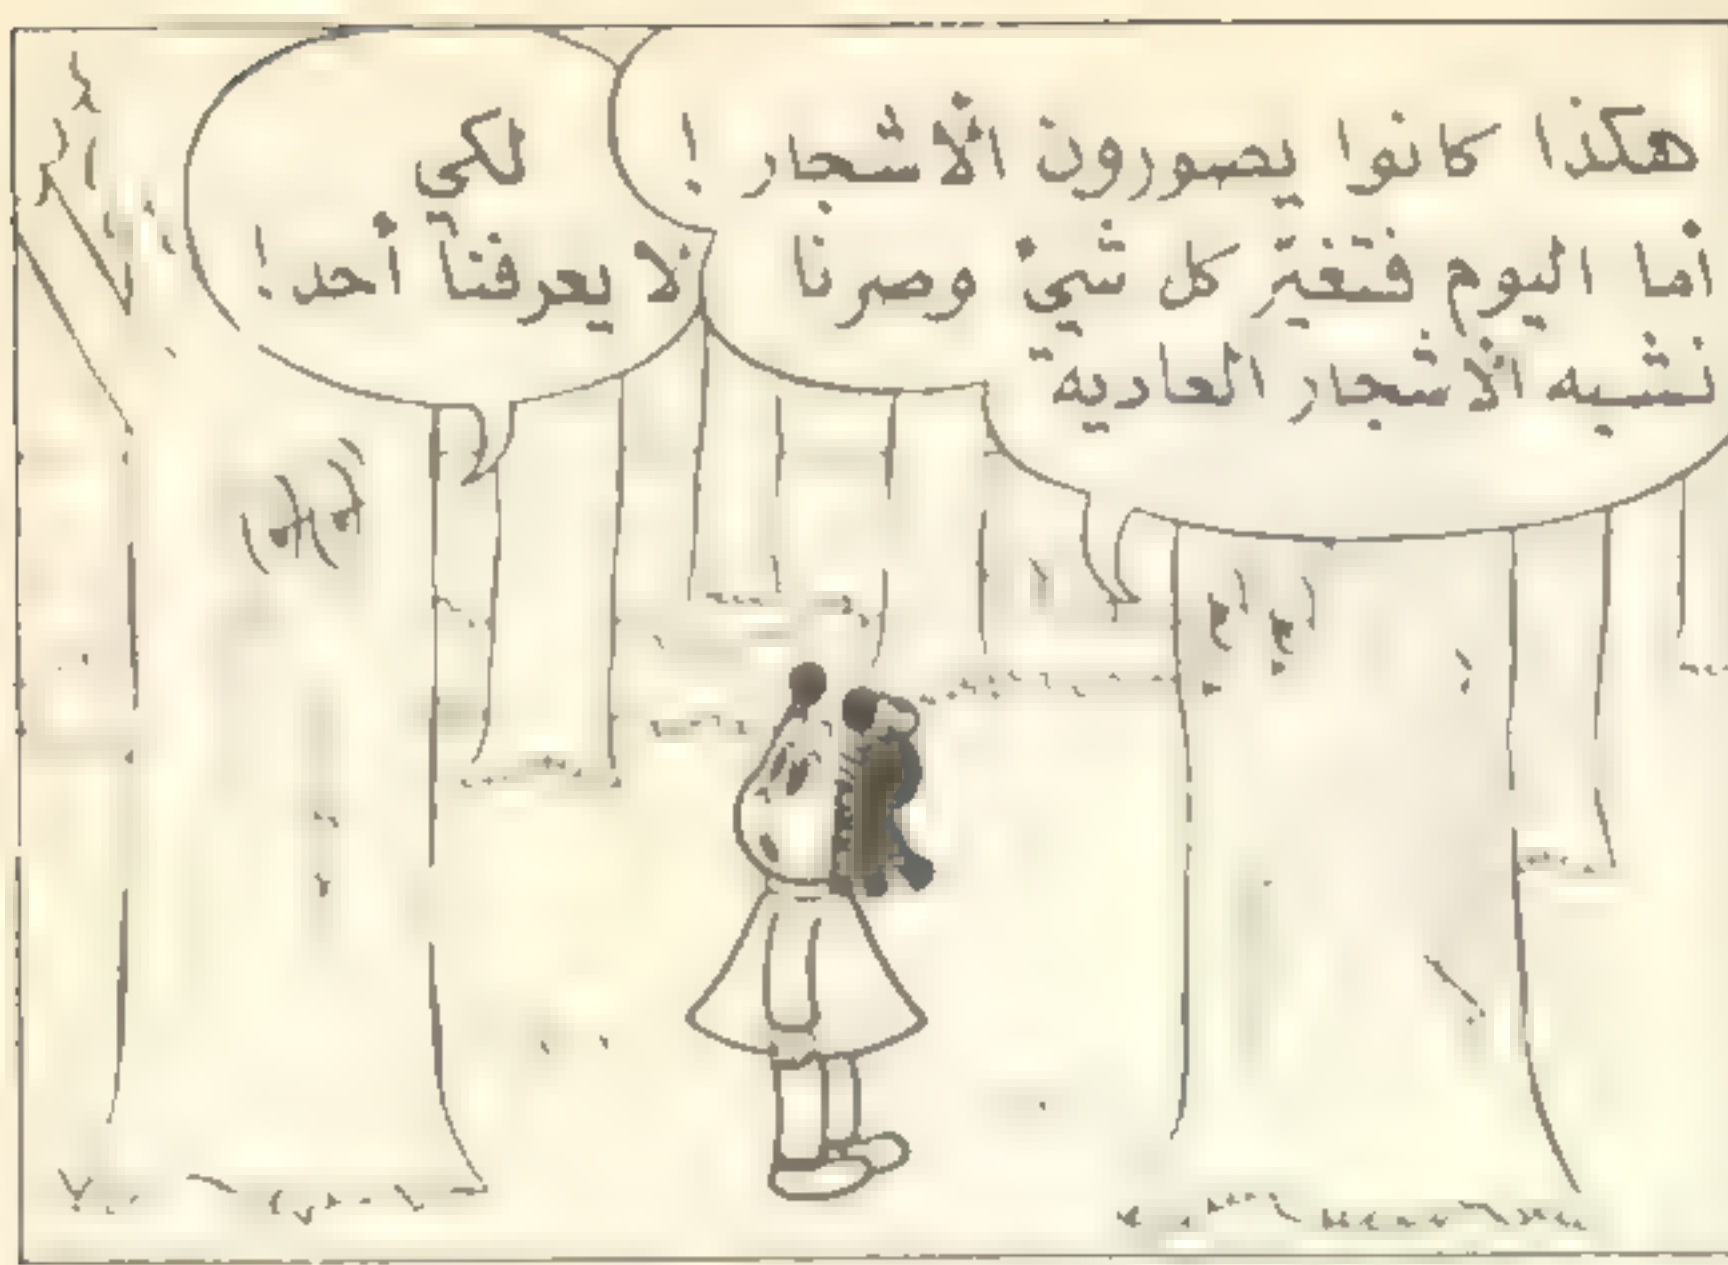 هكذا كانوا يصورون الاشجار !
أما اليوم فتغيّر كل شيئ وصرنا
نشبه الاشجار العاديه
لكي
لا يعرفنا أحد !